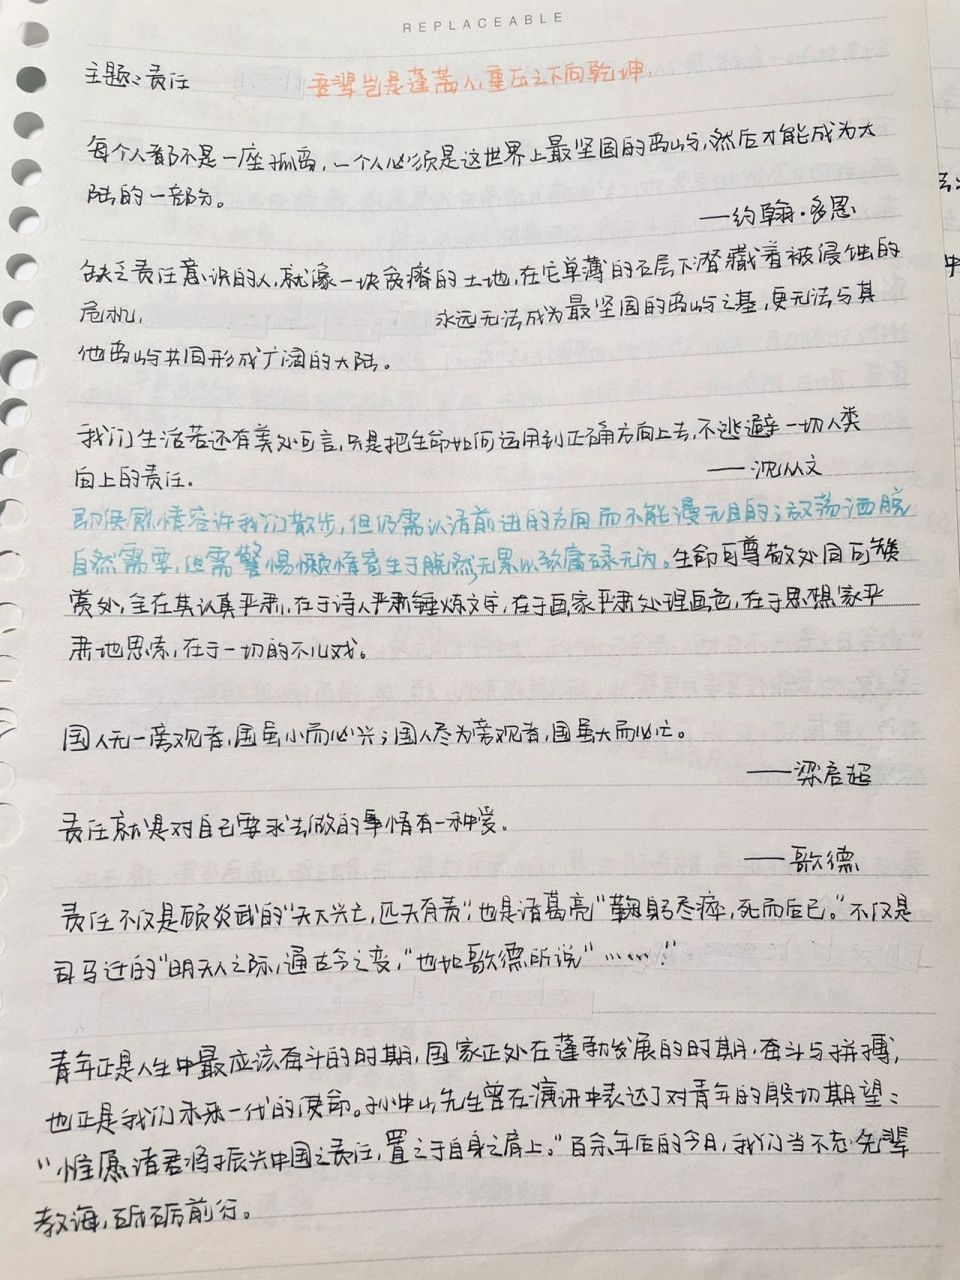 REPLACEABLE
主题：责任
吾辈岂是蓬蒿人，重压之下向乾坤.
每个人都不是一座孤岛，一个人必须是这世界上最坚固的岛屿，然后才能成为大
陆的一部分。
——约翰·多恩
缺乏责任意识的人，就像一块贫瘠的土地，在它单薄的石层下潜藏着被侵蚀的
危机， 永远无法成为最坚固的岛屿之基，更无法与其
他岛屿共同形成广阔的大陆。
我们生活若还有美处可言，只是把生命如何运用到正确方向上去，不逃避一切人类
向上的责任.
——沈从文
即使感情容许我们散步，但仍需认清前进的方向而不能漫无目的；放荡洒脱
自然需要，但需警惕懒惰寄生于脱然无累以致庸碌无为。生命可尊敬处同可赞
赏处，全在其认真严肃，在于诗人严肃锤炼文字，在于画家严肃处理画色，在于思想家严
肃地思索，在于一切的不儿戏。
国人无一旁观者，国虽小而必兴；国人尽为旁观者，国虽大而必亡。
——梁启超
责任就是对自己要求去做的事情有一种爱。
——歌德
责任不仅是顾炎武的"天下兴亡，匹夫有责"，也是诸葛亮"鞠躬尽瘁，死而后已。"不仅是
司马迁的"明天人之际，通古今之变，"也如歌德所说"……."
青年正是人生中最应该奋斗的时期，国家正处在蓬勃发展的时期，奋斗与拼搏，
也正是我们未来一代的使命。孙中山先生曾在演讲中表达了对青年的殷切期望：
"惟愿诸君将振兴中国之责任，置之于自身之肩上。"百余年后的今日，我们当不忘先辈
教诲，砥砺前行。